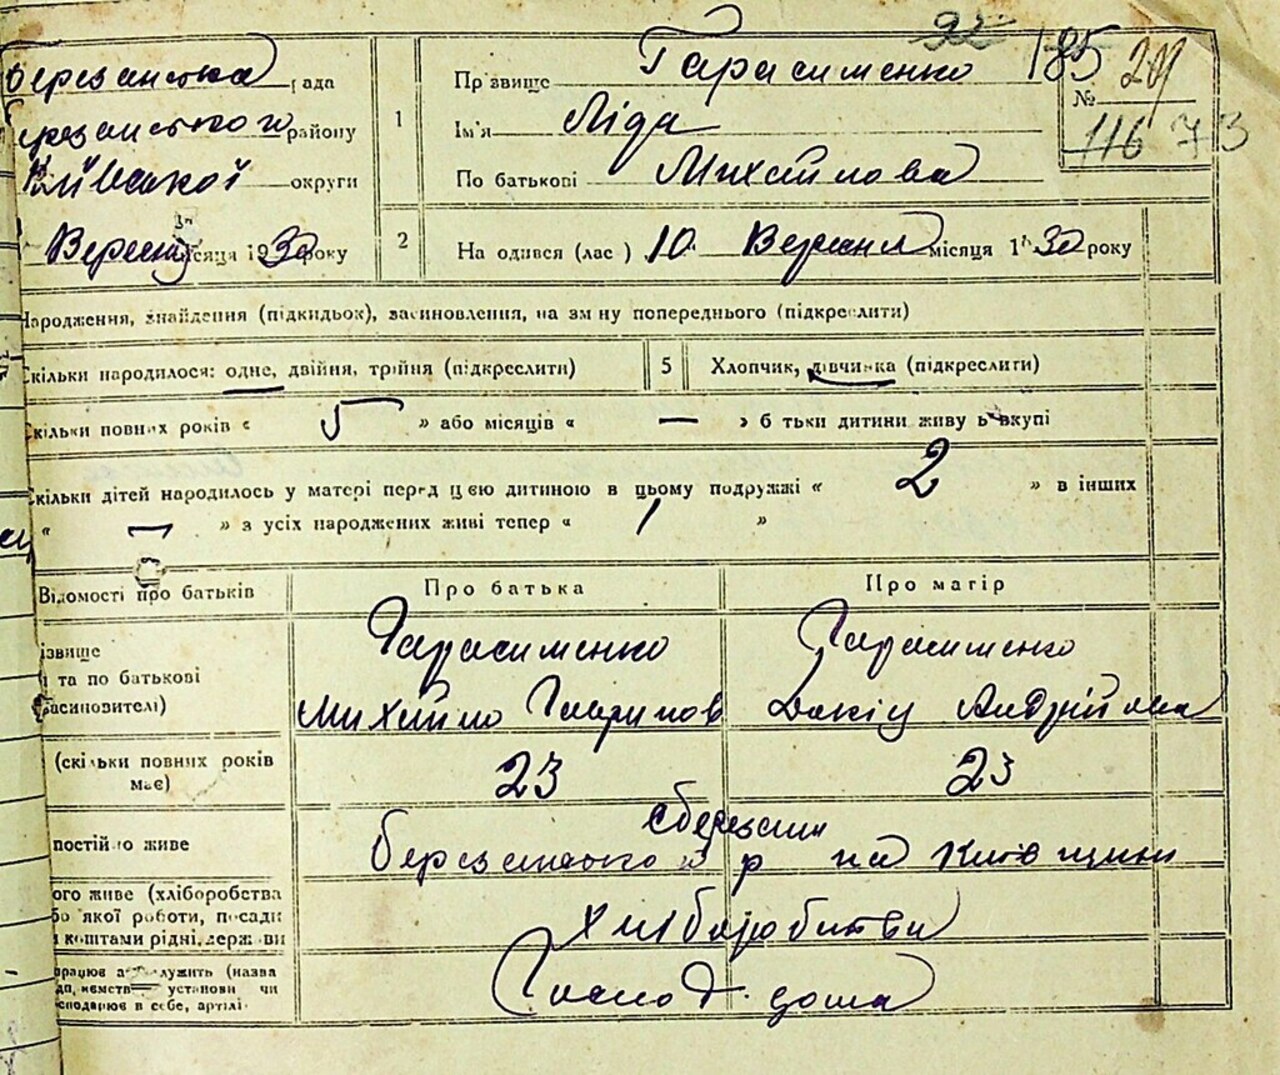 Березанська рада
Березанського району
Київської округи
Вересня місяця 1930 року
1
Прізвище Гарасименко
Ім'я Ліда
По батькові Михайлова
92 185
№ 209
116 73
2
Народився (лась) 10 Вересня місяця 1930 року
Народження, знайдення (підкидьок), засиновлення, на зміну попереднього (підкреслити)
Скільки народилося: одне, двійня, трійня (підкреслити)
5 Хлопчик, дівчинка (підкреслити)
Скільки повних років « 5 » або місяців « — » батьки дитини живуть вкупі
Скільки дітей народилось у матері перед цією дитиною в цьому подружжі « 2 » в інших
« — » з усіх народжених живі тепер « 1 »
Відомості про батьків Про батька Про матір
ізвище
та по батькові
засиновителі)
Гарасименко
Михайло
Гарасименко
Андріївна
(скільки повних років
має)
23 23
постійно живе
с Березань
Березанського р на Київщини
ого живе (хліборобства
бо якої роботи, посади
коштами рідні, держави
Хліборобства
працює а служить (назва
установи чи
сподарює в себе, артілі
Господ. дома